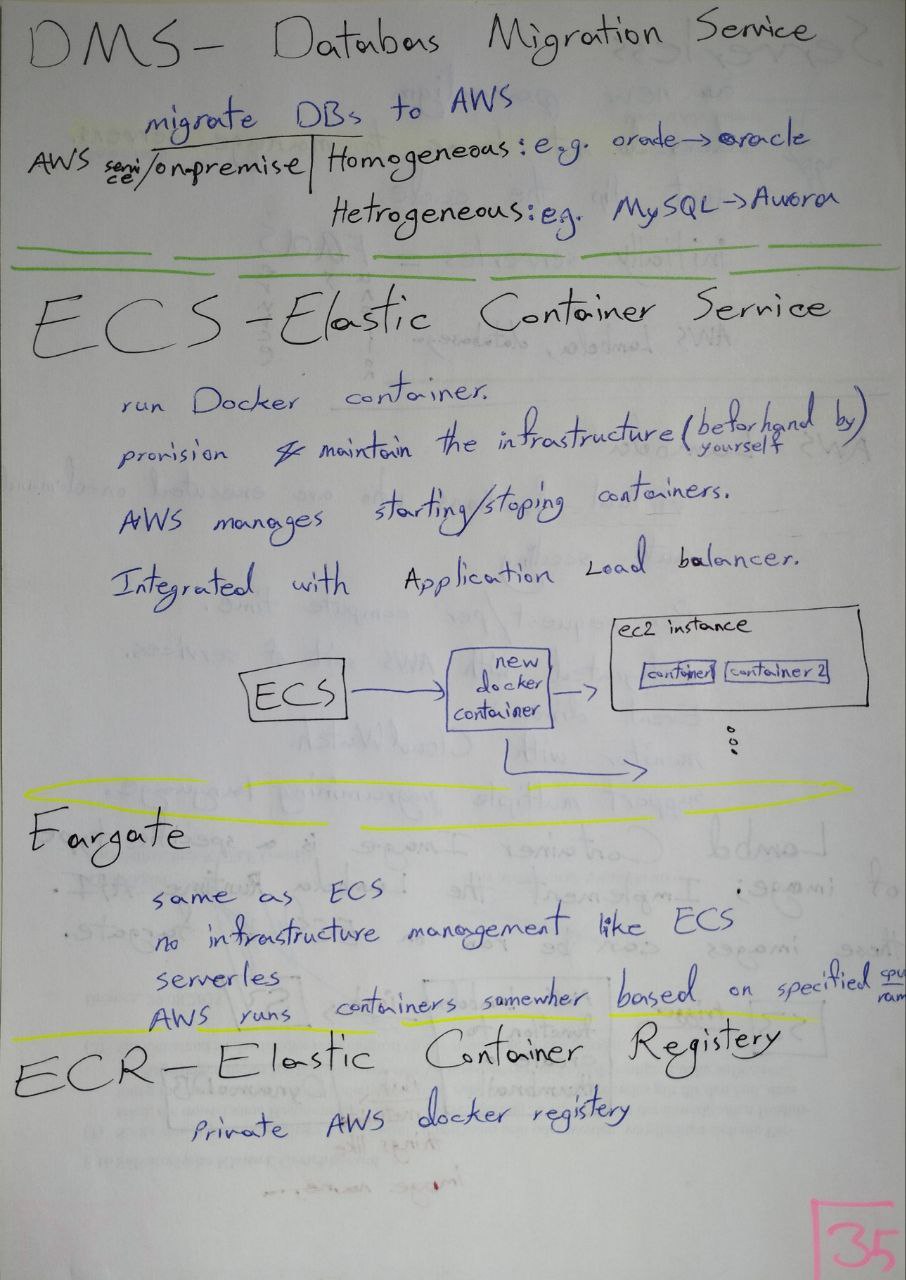 DMS - Databas Migration Service
migrate DBs to AWS
AWS service/on-premise
Homogeneous: e.g. oracle → oracle
Hetrogeneous: eg. MySQL → Aurora
ECS - Elastic Container Service
run Docker container.
provision & maintain the infrastructure (beforhand by yourself)
AWS manages starting/stoping containers.
Integrated with Application Load balancer.
ECS
new
docker
container
ec2 instance
container
container 2
Fargate
same as ECS
no infrastructure management like ECS
serverles
AWS runs containers somewher based on specified cpu ram
ECR - Elastic Container Registery
Private AWS docker registery
35